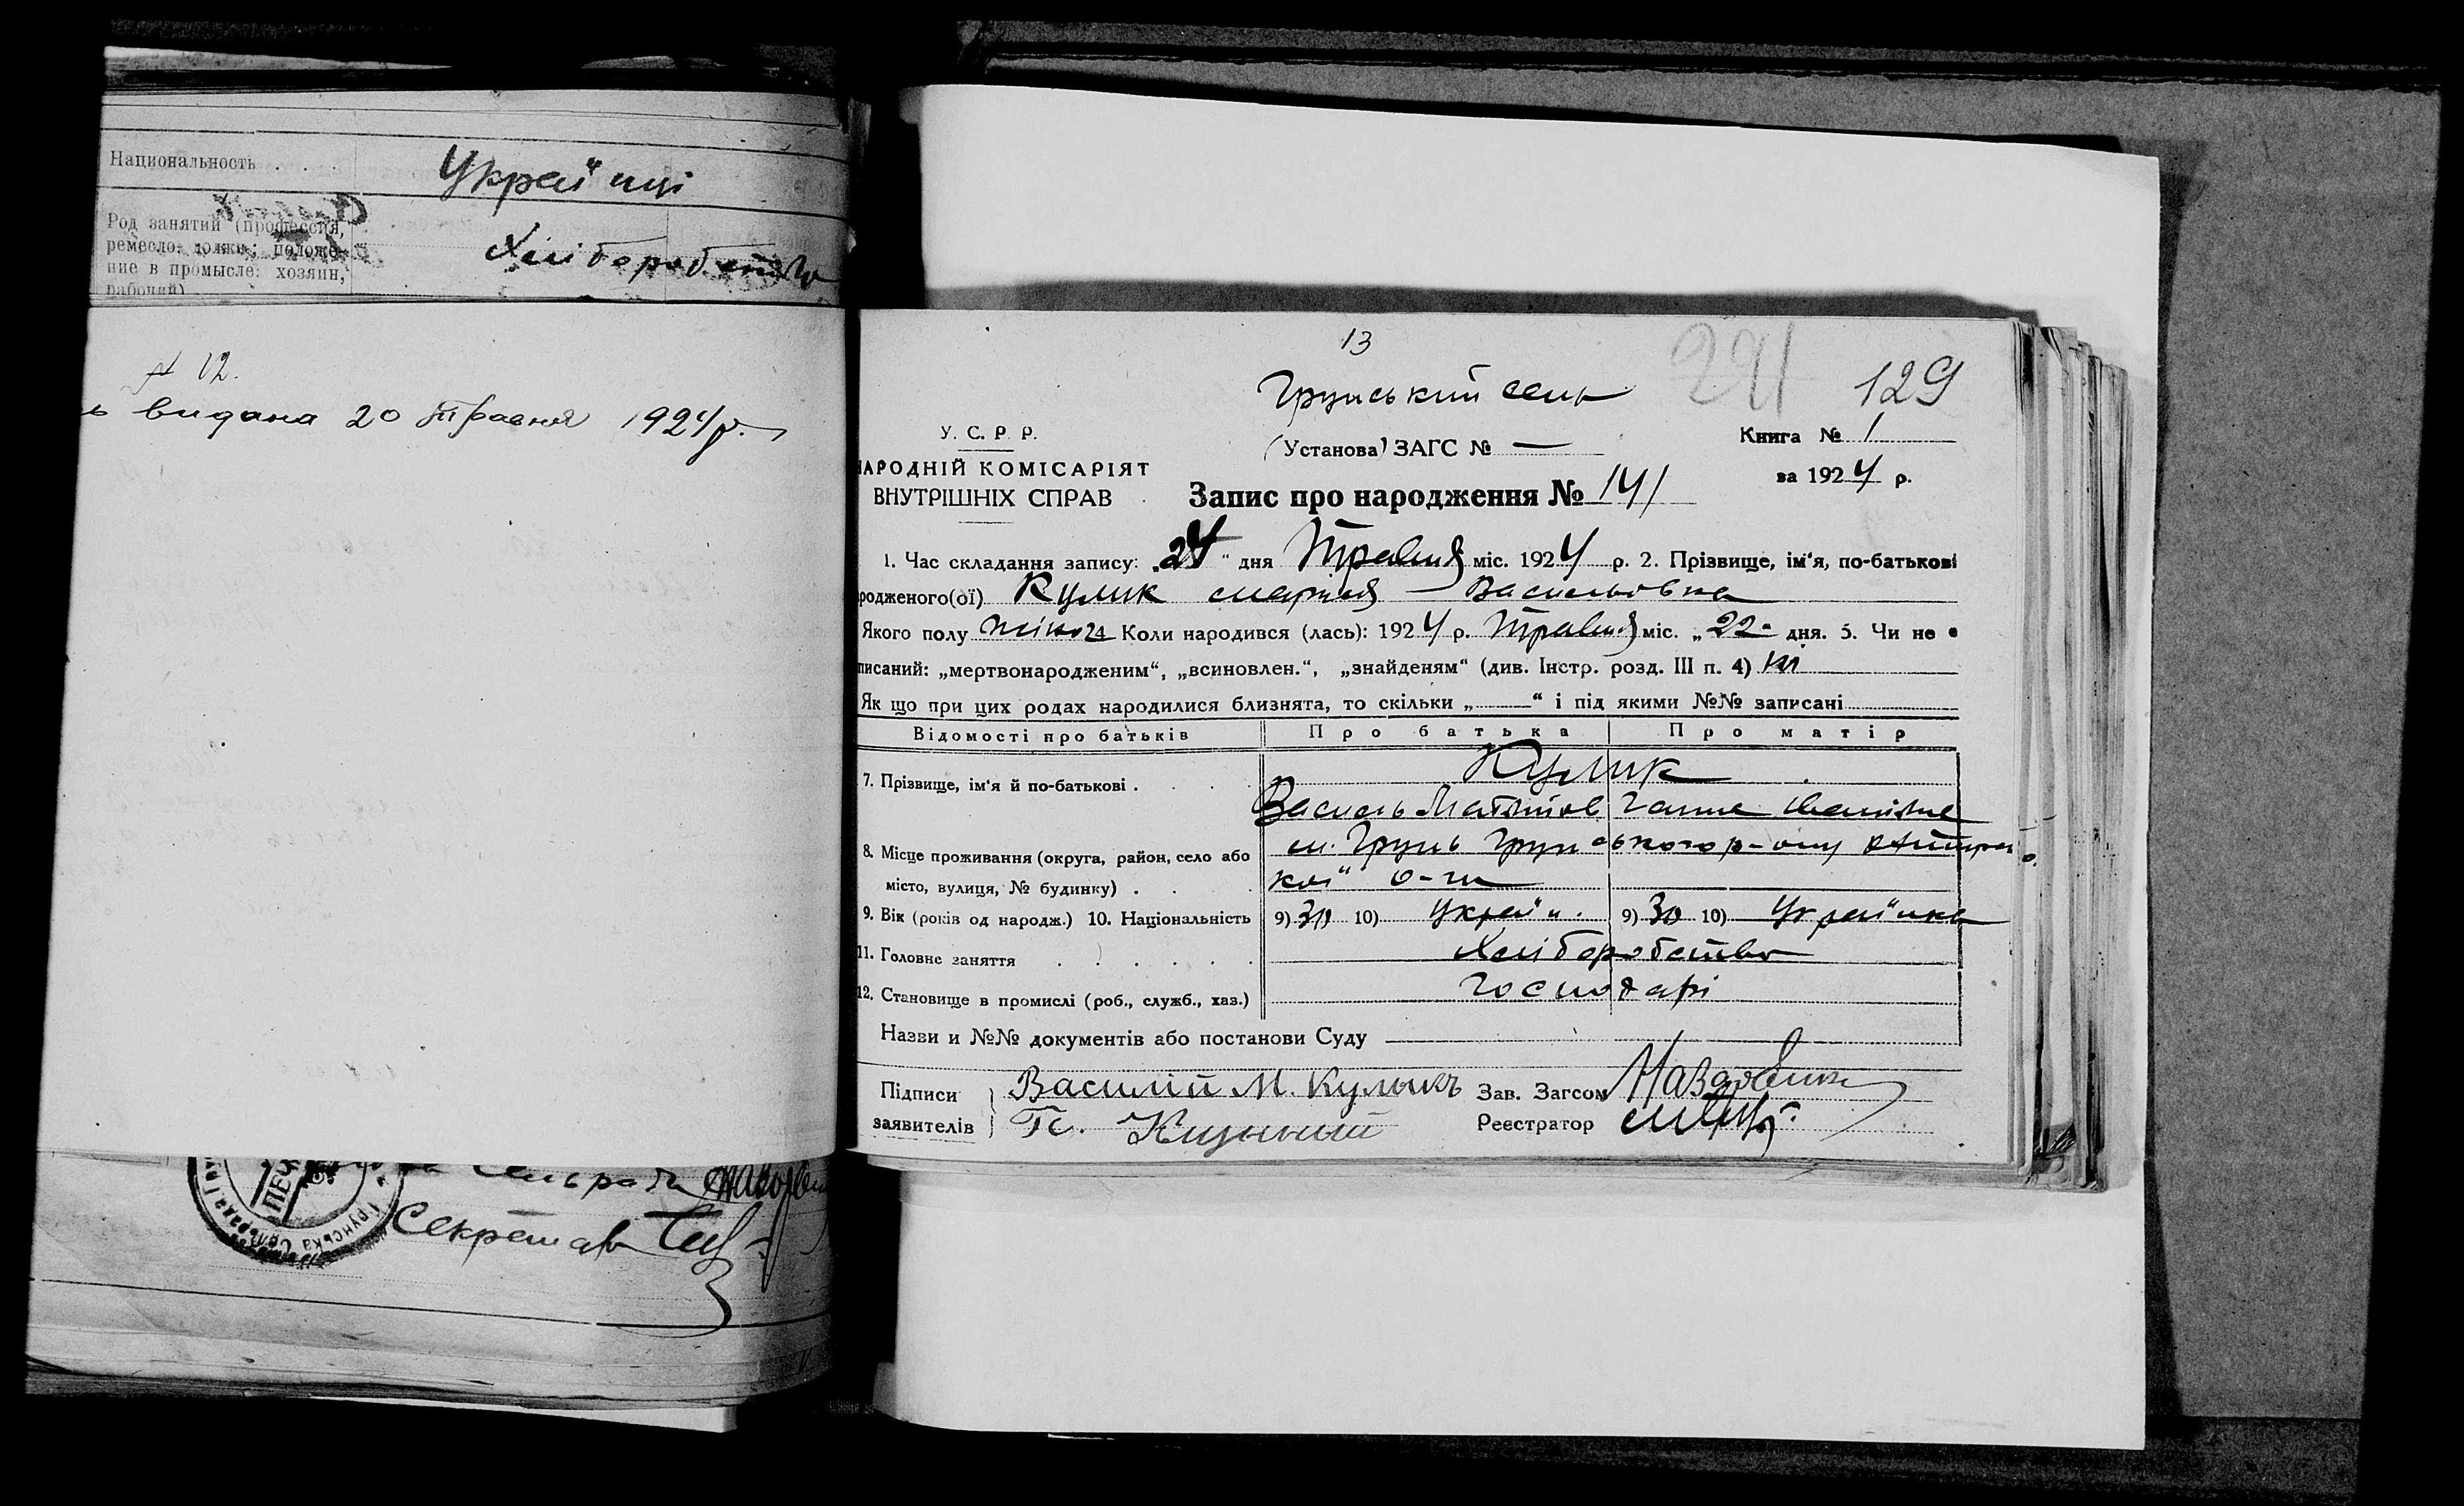 Национальность . . .
Українці
Род занятий (профессия,
ремесло, должн.; положе-
ние в промысле: хозяин,
рабочий)
Хліборобство
№ 12.
ь видана 20 травня 1924 р.
Сельради
Секретар
Грунська Сільрада
13
Грунський сель
241
129
У. С. Р. Р.
(Установа) ЗАГС № —
Книга № 1
НАРОДНІЙ КОМІСАРІЯТ
за 1924 р.
ВНУТРІШНІХ СПРАВ
Запис про народження № 141
1. Час складання запису: „24“ дня Травня міс. 1924 р. 2. Прізвище, ім'я, по-батькові
родженого(ої) Кулик Марія Васильовна
Якого полу жіноч 4 Коли народився (лась): 1924 р. Травня міс. „22“ дня. 5. Чи не є
писаний: „мертвонародженим“, „всиновлен.“, „знайденям“ (див. Інстр. розд. III п. 4) ні
Як що при цих родах народилися близнята, то скільки „ “ і під якими №№ записані
Відомості про батьків Про батька Про матір
7. Прізвище, ім'я й по-батькові . Кулик
Василь Матвійов Ганна Іванівна
8. Місце проживання (округа, район, село або м. Грунь Грунського р-ону
місто, вулиця, № будинку) . кої о-ги
9. Вік (років од народж.) 10. Національність 9) 30 10) Україн. 9) 30 10) Українка
11. Головне заняття Хліборобство
12. Становище в промислі (роб., служб., хаз.) Господарі
Назви и №№ документів або постанови Суду
Підписи Василій М. Куликъ Зав. Загсом
заявителів Реестратор